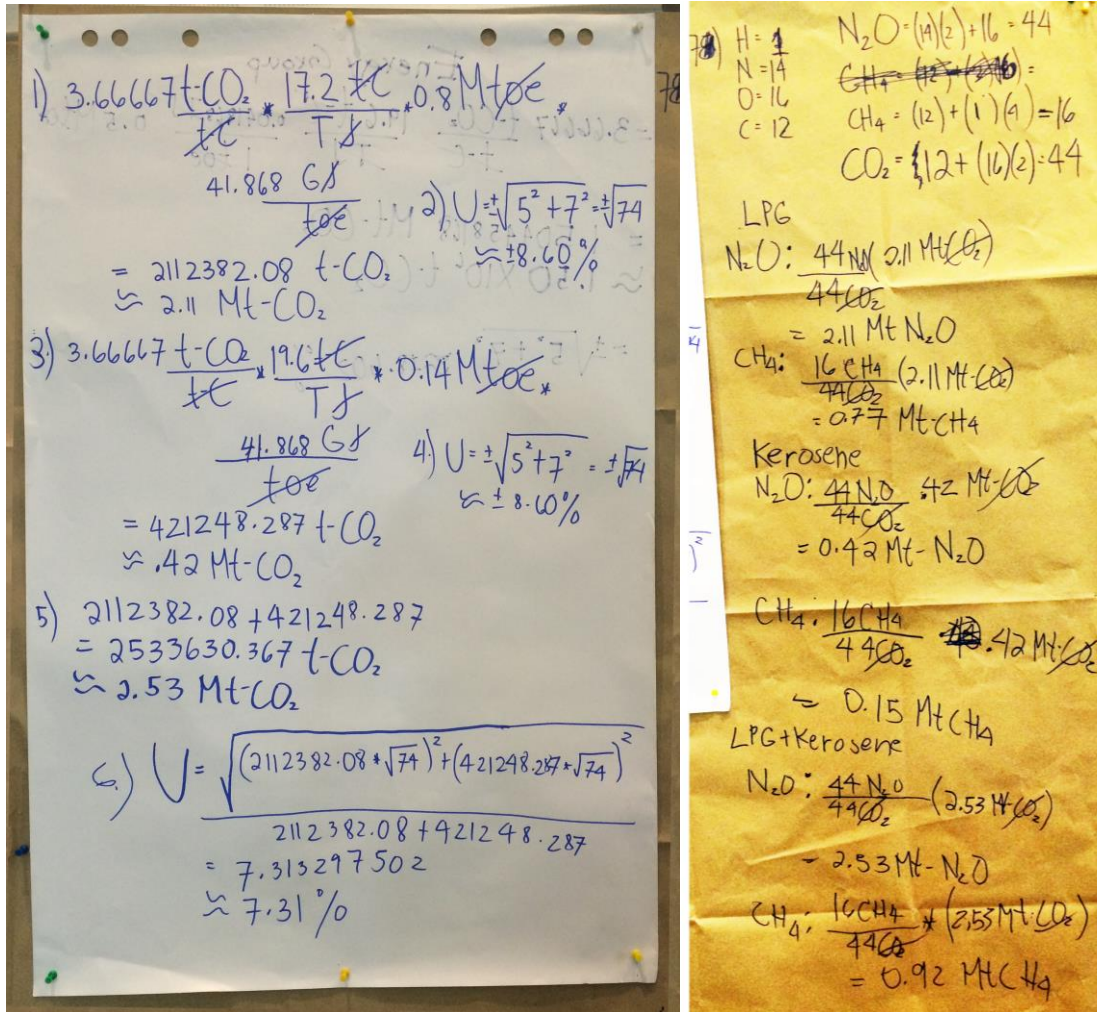 1) 3.66667 t-CO₂ / tC * 17.2 tC / TJ * 0.8 Mtoe *
41.868 GJ / toe
= 2112382.08 t-CO₂
≈ 2.11 Mt-CO₂
2) U = ±√5² + 7² = ±√74
≈ ±8.60%
3) 3.66667 t-CO₂ / tC * 19.6 tC / TJ * 0.14 Mtoe *
41.868 GJ / toe
= 421248.287 t-CO₂
≈ .42 Mt-CO₂
4) U = ±√5² + 7² = ±√74
≈ ±8.60%
5) 2112382.08 + 421248.287
= 2533630.367 t-CO₂
≈ 2.53 Mt-CO₂
6.) U = √(2112382.08 * √74)² + (421248.287 * √74)²
2112382.08 + 421248.287
= 7.313297502
≈ 7.31%
H = 1
N = 14
O = 16
C = 12
N₂O = (14)(2) + 16 = 44
CH₄ = (12) + (1)(4) = 16
CO₂ = 12 + (16)(2) = 44
LPG
N₂O: 44 N₂O / 44 CO₂ (2.11 Mt-CO₂)
= 2.11 Mt N₂O
CH₄: 16 CH₄ / 44 CO₂ (2.11 Mt-CO₂)
= 0.77 Mt-CH₄
Kerosene
N₂O: 44 N₂O / 44 CO₂ .42 Mt-CO₂
= 0.42 Mt-N₂O
CH₄: 16 CH₄ / 44 CO₂ .42 Mt-CO₂
≈ 0.15 Mt CH₄
LPG+Kerosene
N₂O: 44 N₂O / 44 CO₂ (2.53 Mt CO₂)
= 2.53 Mt-N₂O
CH₄: 16 CH₄ / 44 CO₂ * (2.53 Mt-CO₂)
= 0.92 Mt CH₄